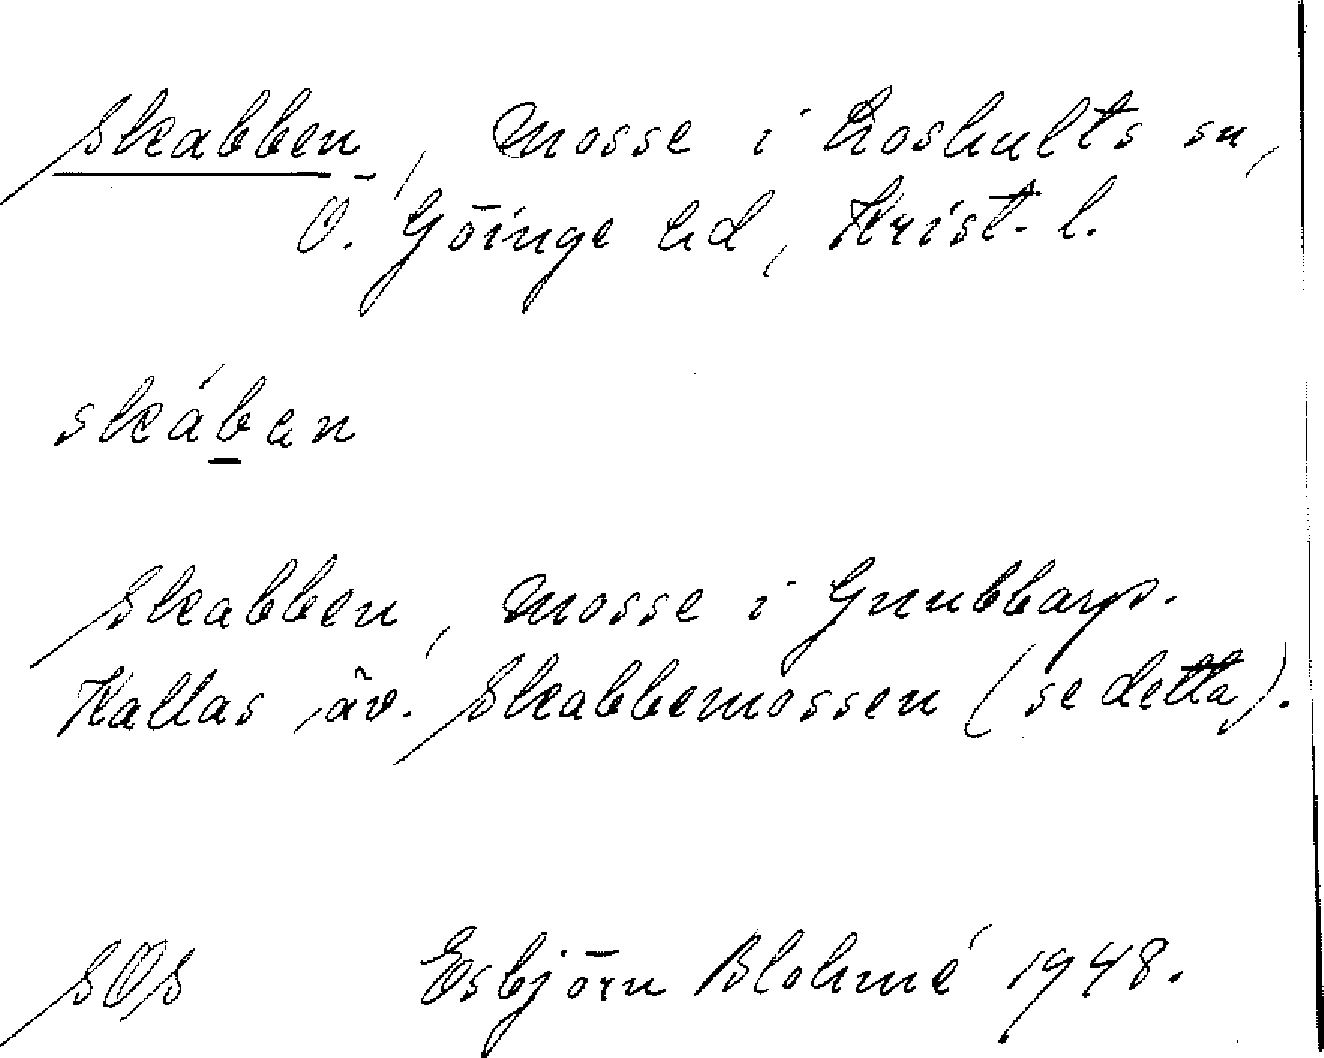 Skabben, mosse i Loshults sn,
Ö. Göinge hd, Krist. l.
skában
Skabben, mosse i Gnubbarp.
Kallas äv. Skabbemossen (se detta).
SOS Esbjörn Blohmé 1948.